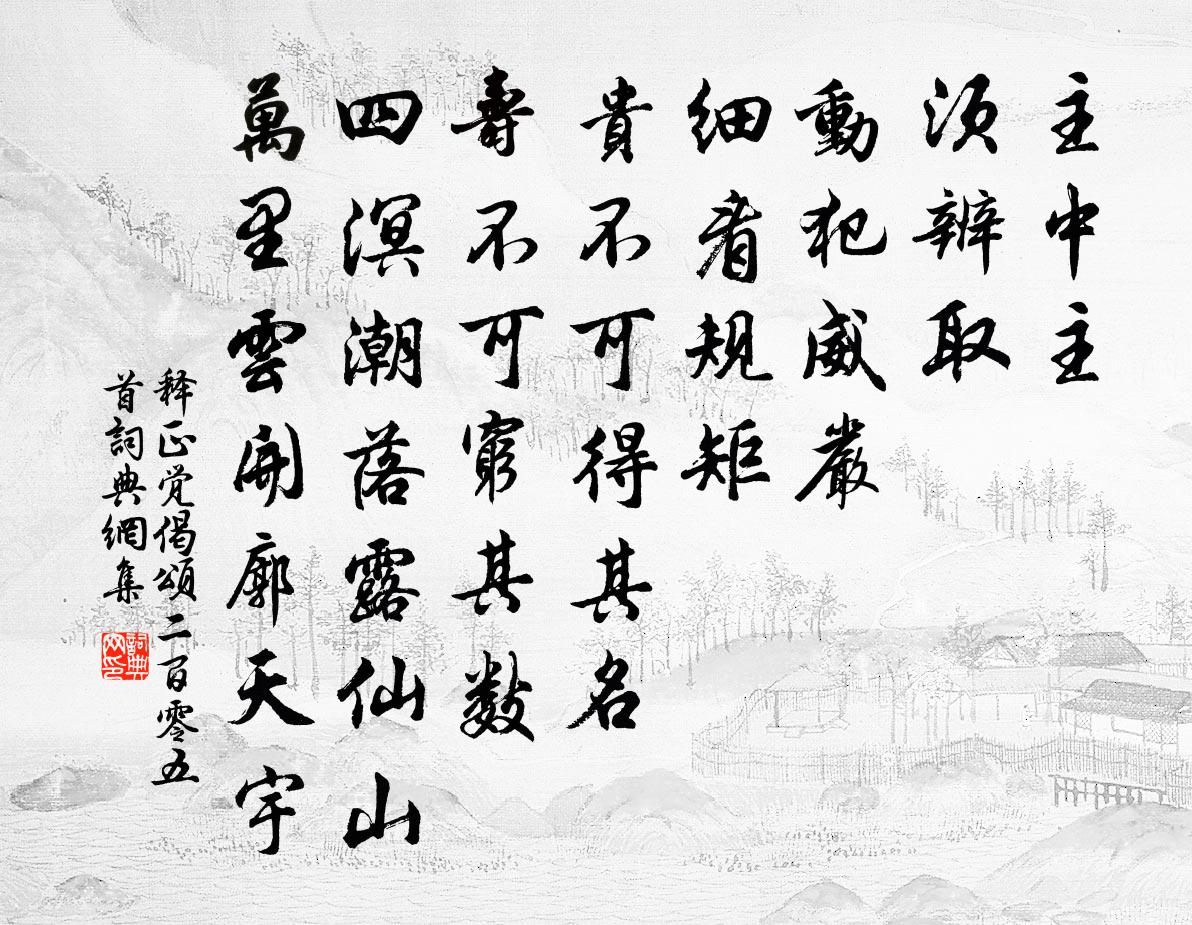 主中主
須辨取
動犯威嚴
細看規矩
貴不可得其名
壽不可窮其數
四溟潮落露仙山
萬里雲開廓天宇
释正觉偈頌二百零五
首詞典網集
詞典网印